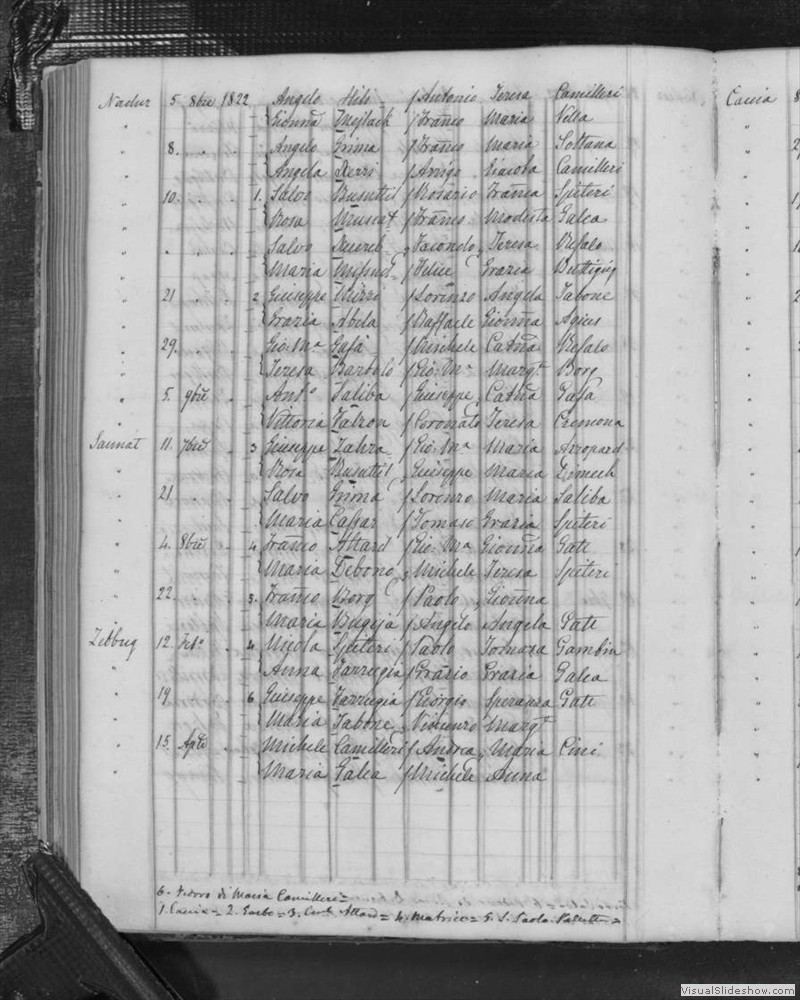 Nadur 5 8bre 1822 Angelo Hili / Antonio Teresa Camilleri
Gionna Mejlack / Franco Maria Vella
8. Angelo Grima / Franco Maria Soltana
Angela Xerri / Camilleri
10. 1. Salvo Busuttil / Rosario Franca Spiteri
Rosa Muscat / Franco Modesta Galea
Salvo Xuereb Teresa Refalo
Maria Mifsud / Felice Grazia Buttigieg
21 2 Giuseppe Mizzi / Lorenzo Angela Tabone
Grazia Abela / Raffaele Gionna Agius
29. Gio: Ma Gafà / Michele Catna Refalo
Teresa Bartolo / Gio: Ma Margta Borg
5. 9bre Anto Saliba / Giuseppe Catna Gafà
Vittoria Falzon / Coronato Teresa Cremona
Sannat 11. 7bre 3 Giuseppe Zahra / Gio: Ma Maria Azzopard
Rosa Busuttil Giuseppe Maria Dimech
21 Salvo Grima / Lorenzo Maria Saliba
Maria Cassar / Tomaso Grazia Spiteri
4. 8bre 4 Franco Attard / Gio: Ma Gionna Gatt
Maria Debono Michele Teresa Spiteri
22 5. Franco Borg / Paolo Gionna
Maria Bugeja / Angelo Angela Gatt
Zebbug 12. Febo 4 Nicola Spiteri / Paolo Tomasa Gambin
Anna Farrugia / Grazio Grazia Galea
19 6 Giuseppe Farrugia / Giorgio Speranza Gatt
Maria Tabone Vincenzo Margta
15. Aple Michele Camilleri / Andrea Maria Cini
Maria Galea / Michele Anna
6. Vedovo di Maria Camilleri =
1. Cacia = 2. Garbo = 3. Attard = 4. Matrice = 5. S. Paolo Valletta =
Cacia 8
VisualSlideshow.com